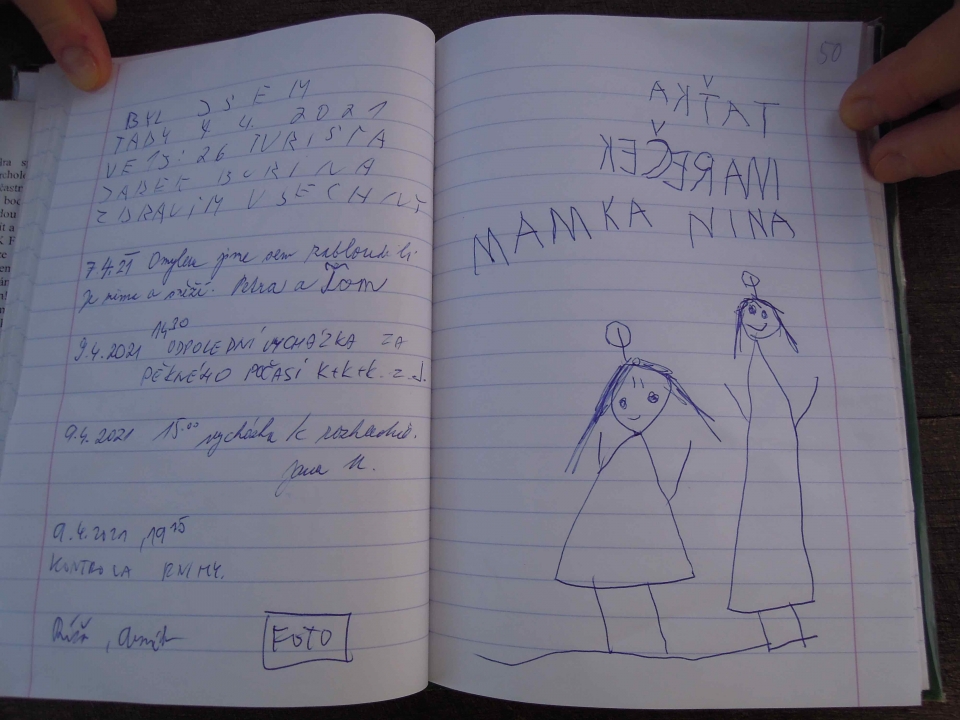 BYL JSEM
TADY 4. 4. 2021
VE 13:26 TURISTA
ZDRAVÍM VŠECHNY
7.4.21 Omylem jsme sem zabloudili.
Je nám a svěží. Petra a Tom
9.4.2021 14³⁰ ODPOLEDNÍ VYCHÁZKA ZA
PĚKNÉHO POČASÍ K+K+K. z J.
9.4.2021 15.⁰⁰ vycházka k rozhledně.
Jana K.
9.4.2021, 19¹⁵
KONTROLA KNIHY.
FOTO
50
TAŤKA
MAREČEK
MAMKA NINA